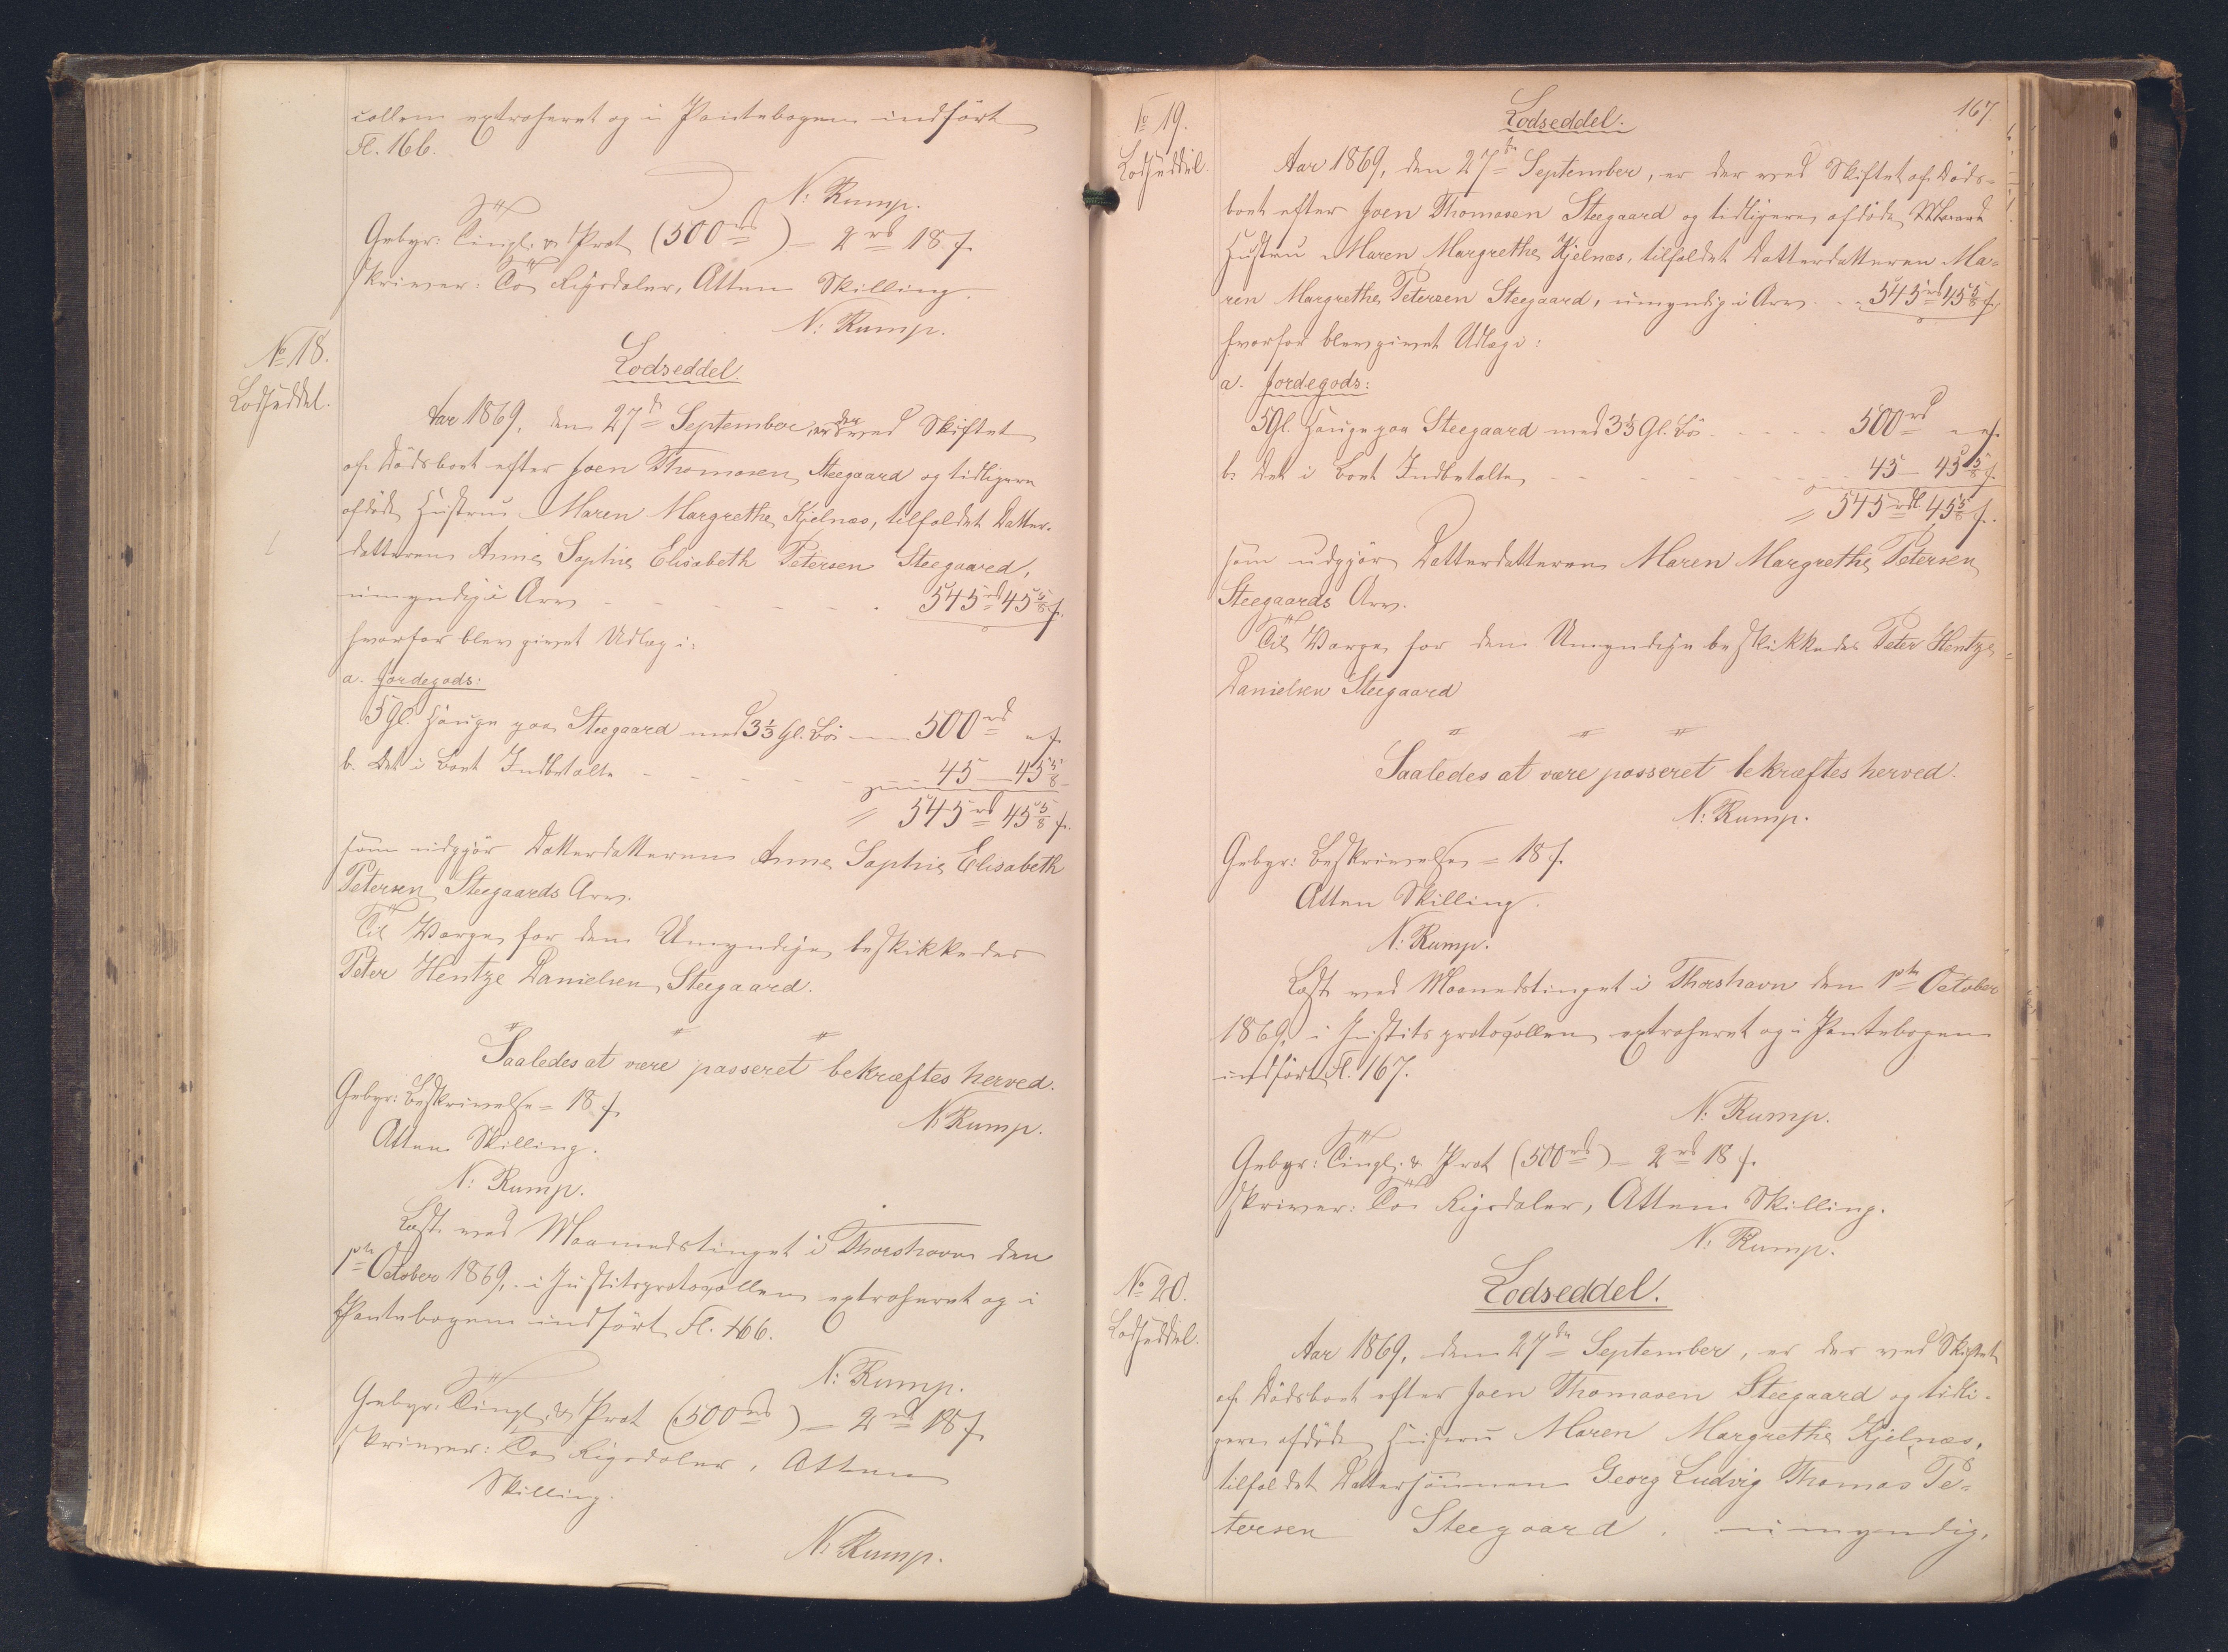 collen extraheret og i Pantebogen indført
Fl. 166.
N: Rump.
Gebyr: Tingl. & Prot (500 rd) = 2 rd 18 s.
skriver: To Rigsdaler, Atten Skilling.
N: Rump.
No 18.
Lodseddel.
Lodseddel.
Aar 1869, den 27de September, er der ved Skiftet
af Dödsboet efter Joen Thomasen Steegaard og tidligere
afdöde Hustru Maren Margrethe Kjelnæs, tilfaldet Datter-
datteren Anne Sophie Elisabeth Petersen Steegaard,
umyndig i Arv - - - - - - 545 rd 45 5/8 s.
hvorfor blev givet Udlæg i:
a. Jordegods:
5 Gl. Hauge paa Steegaard med 3 1/3 Gl. Bö — 500 rd " s.
b. Det i Boet Indbetalte - - - - - 45 — 45 5/8 -
= 545 rd 45 5/8 s.
som udgjör Datterdatteren Anne Sophie Elisabeth
Petersen Steegaards Arv.
Til Værge for den Umyndige beskikkedes
Peter Hentze Danielsen Steegaard.
Saaledes at være passeret bekræftes herved.
N. Rump.
Gebyr: Beskrivelse = 18 s.
Atten Skilling.
N: Rump.
Læst ved Maanedstinget i Thorshavn den
1ste October 1869, i Justitsprotocollen extraheret og i
Pantebogen indført Fl. 166.
N: Rump.
Gebyr. Tingl. & Prot (500 rd) = 2 rd 18 s.
skriver: To Rigsdaler, Atten
Skilling.
N: Rump.
167.
No 19.
Lodseddel.
Lodseddel.
Aar 1869, den 27de September, er der ved Skiftet af Döds-
boet efter Joen Thomasen Steegaard og tidligere afdöde
Hustru Maren Margrethe Kjelnæs, tilfaldet Datterdatteren Ma-
ren Margrethe Petersen Steegaard, umyndig i Arv. - - 545 rd 45 5/8 s.
hvorfor blev givet Udlæg i:
a. Jordegods:
5 Gl. Hauge paa Steegaard med 3 1/3 Gl. Bö - - - - 500 rd " s.
b. Det i Boet Indbetalte - - - - - 45 — 45 5/8 s.
= 545 rdl. 45 5/8 s.
som udgjör Datterdatteren Maren Margrethe Petersen
Steegaards Arv.
Til Værge for den Umyndige beskikkedes Peter Hentze
Danielsen Steegaard
Saaledes at være passeret bekræftes herved.
N: Rump.
Gebyr: Beskrivelse = 18 s.
Atten Skilling.
N: Rump.
Læst ved Maanedstinget i Thorshavn den 1ste October
1869, i Justitsprotocollen extraheret og i Pantebogen
indført Fl. 167.
N: Rump.
Gebyr: Tingl. & Prot (500 rd) = 2 rd 18 s.
skriver: To Rigsdaler, Atten Skilling.
N: Rump.
No 20.
Lodseddel.
Lodseddel.
Aar 1869, den 27de September, er der ved Skiftet
af Dödsboet efter Joen Thomasen Steegaard og tidli-
gere afdöde Hustru Maren Margrethe Kjelnæs,
tilfaldet Dattersönnen Georg Ludvig Thomas Pe-
tersen Steegaard, umyndig,